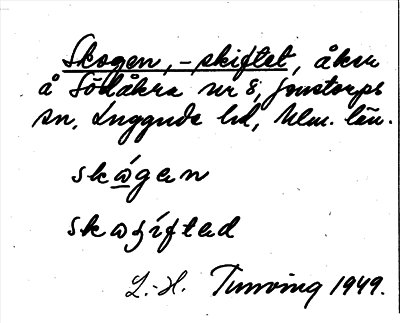 Skogen, -skiftet, åkrar
å Södåkra nr 8, Jonstorps
sn, Luggude hd, Mlm. län.
skågan
skaʒífted
L.-H. Tunving 1949.